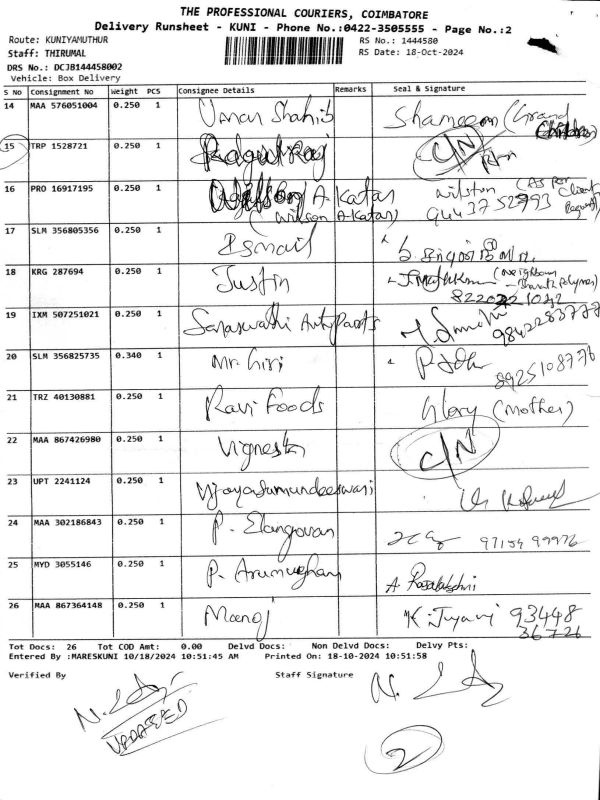 THE PROFESSIONAL COURIERS, COIMBATORE
Delivery Runsheet - KUNI - Phone No.:0422-3505555 - Page No.:2
Route: KUNIYAMUTHUR
RS No.: 1444580
Staff: THIRUMAL
RS Date: 18-Oct-2024
DRS No.: DCJB144458002
Vehicle: Box Delivery
S No Consignment No Weight PCS Consignee Details Remarks Seal & Signature
14 MAA 576051004 0.250 1 Umar Shahib Shameem (Grand
15 TRP 1528721 0.250 1 Ragul Raj C/N
16 PRO 16917195 0.250 1 A. Katar wilston (As per Client Request)
(Wilson A-Katar) 9443752993
17 SLM 356805356 0.250 1 Ismail
18 KRG 287694 0.250 1 Justin (Neighbour
19 IXM 507251021 0.250 1 Saraswathi AutoParts
20 SLM 356825735 0.340 1 Mr. Giri 8925108776
21 TRZ 40130881 0.250 1 Ravi Foods Glory (Mother)
22 MAA 867426980 0.250 1 Vignesh C/N
23 UPT 2241124 0.250 1 Vijayasamundeeswari
24 MAA 302186843 0.250 1 P. Elangovan 97154 99976
25 MYD 3055146 0.250 1 P. Arumugham A
26 MAA 867364148 0.250 1 Manoj 93448
36726
Tot Docs: 26 Tot COD Amt: 0.00 Delvd Docs: Non Delvd Docs: Delvy Pts:
Entered By :MARESKUNI 10/18/2024 10:51:45 AM Printed On: 18-10-2024 10:51:58
Verified By Staff Signature
UPDATED
2